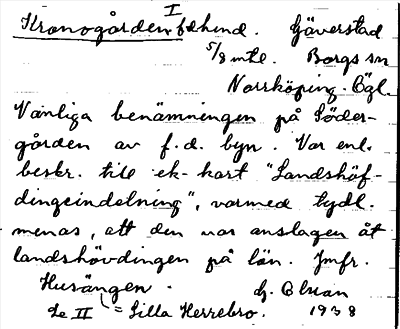 I
Kronogården, f.d. hmd. Gäverstad
5/8 mtl. Borgs sn
Norrköping. Ögl.
Vanliga benämningen på Söder-
gården av f.d. byn. Var enl.
beskr. till ek. kart "Landshöf-
dingeindelning", varmed tydl.
menas, att den var anslagen åt
landshövdingen på län. Jmfr.
Husängen. G.
Se II = Lilla Herrebro. 1938